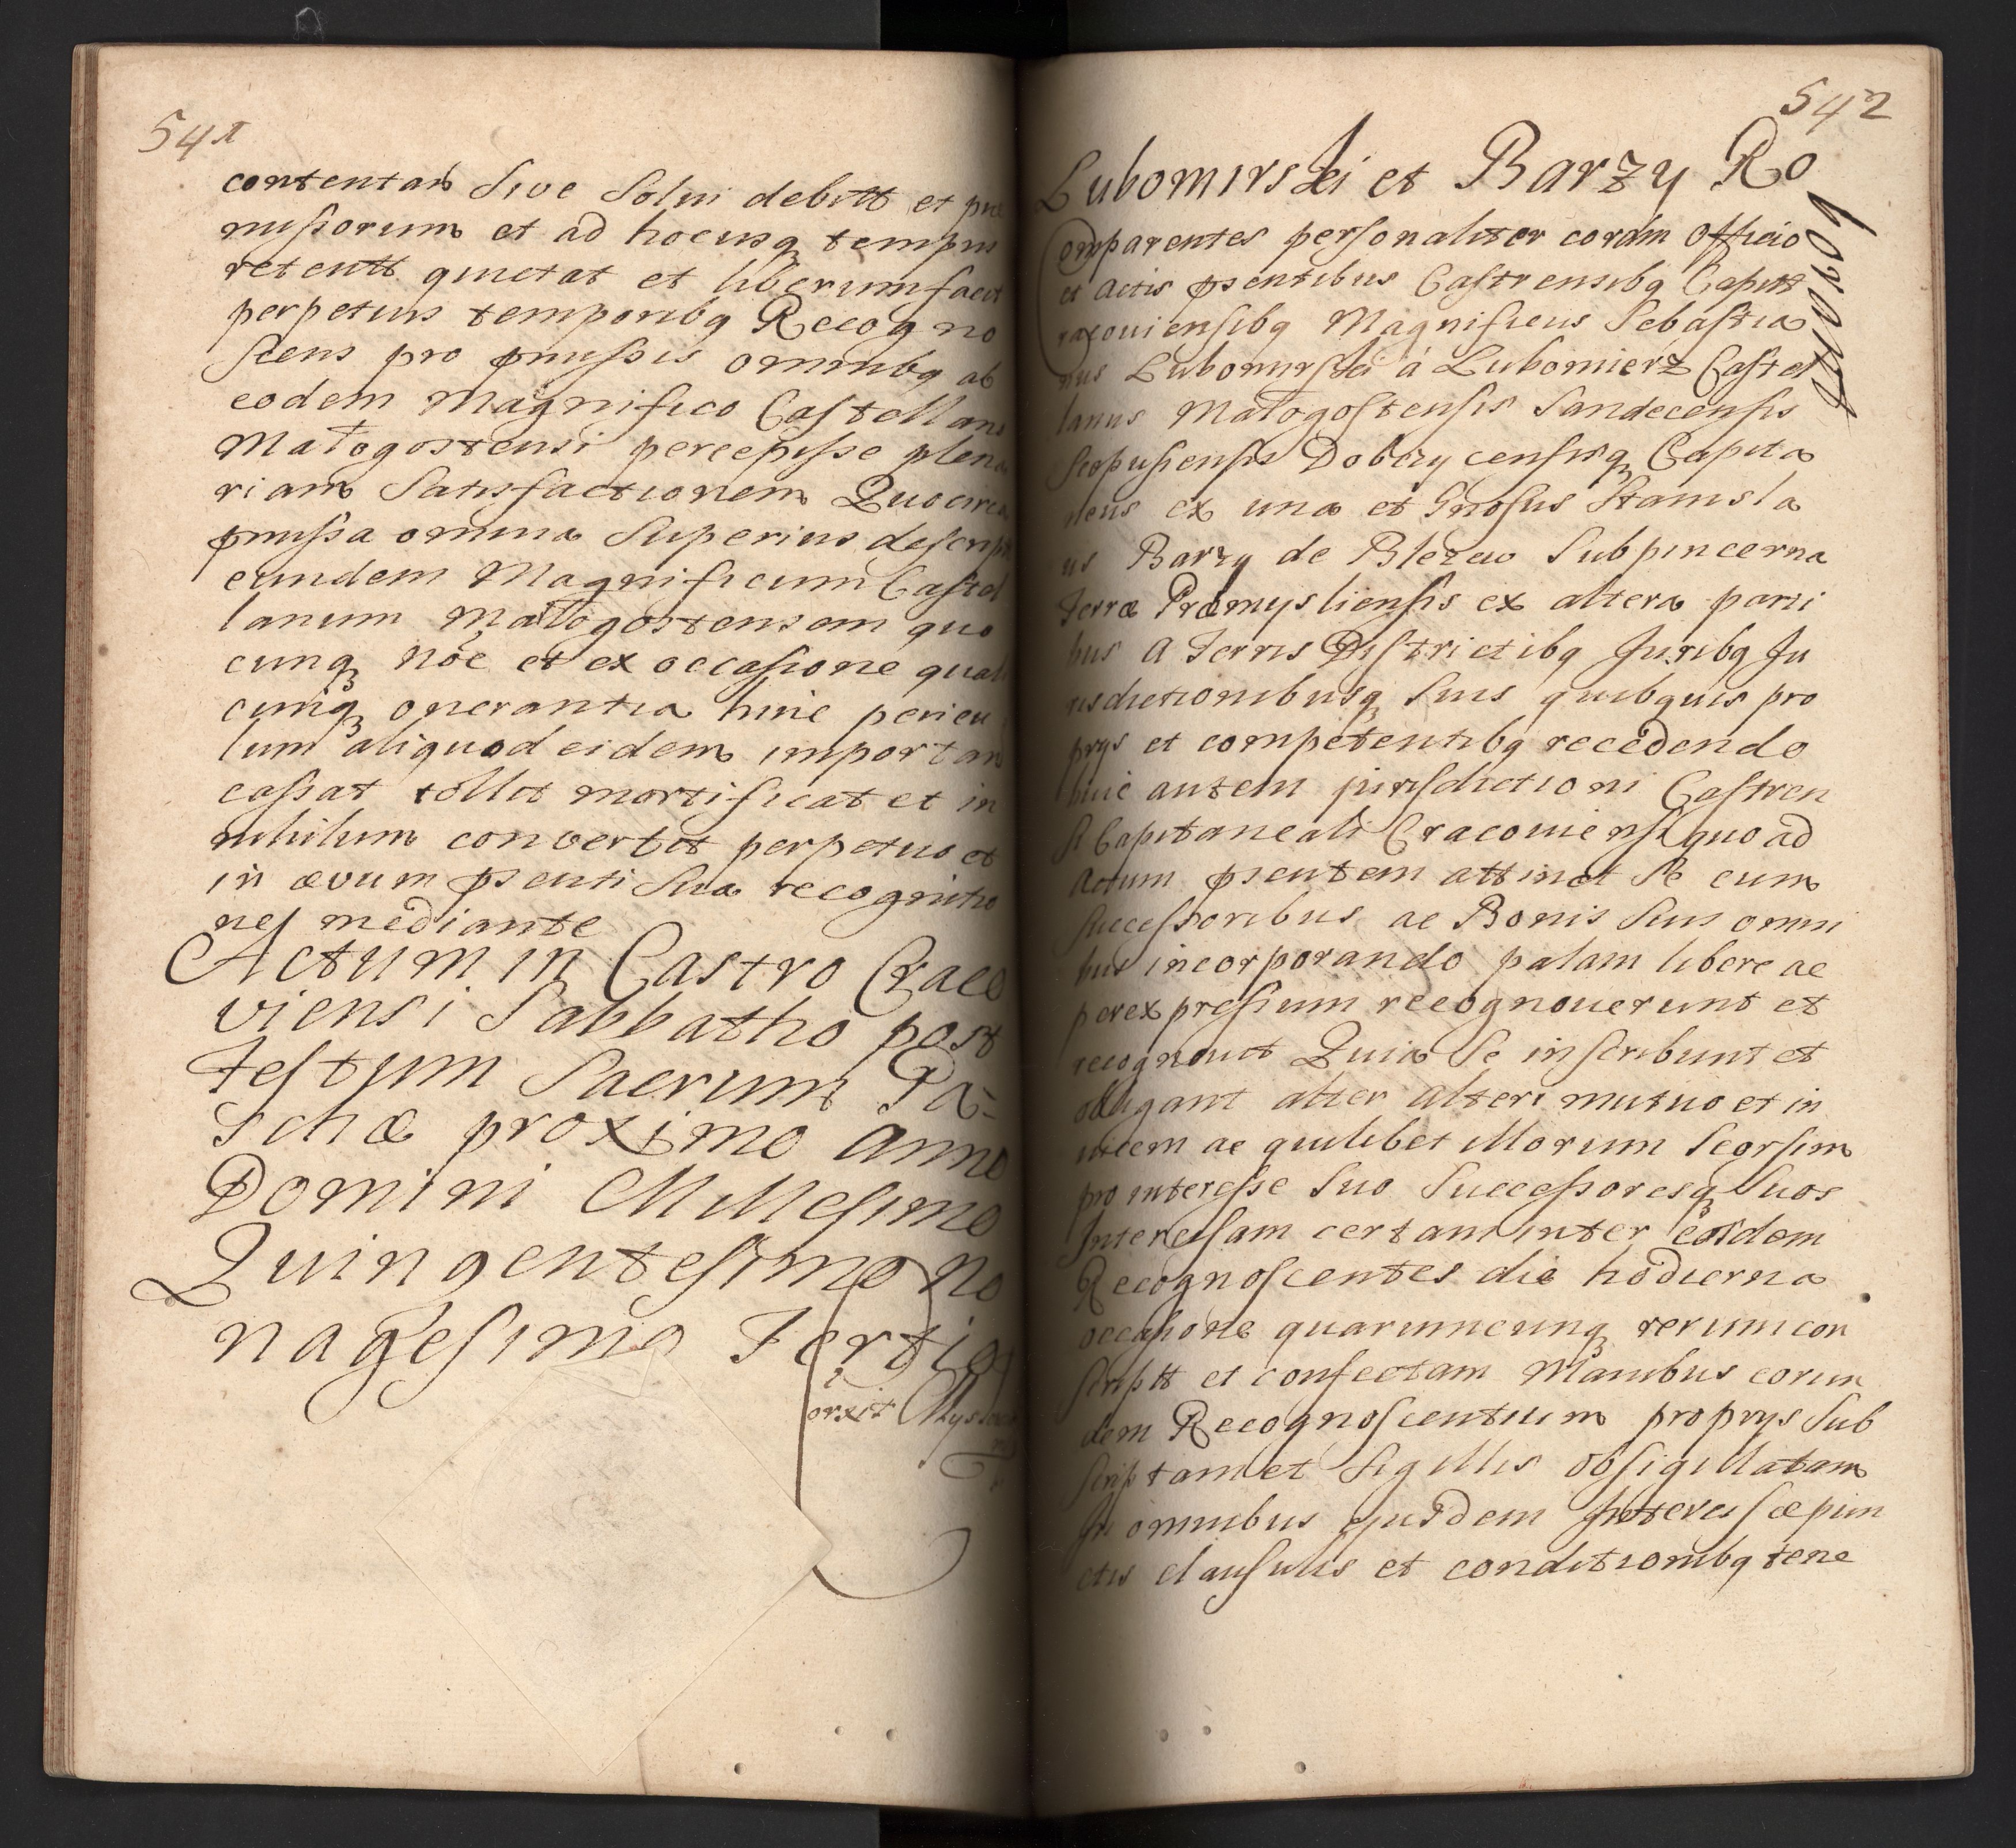 541
contentam Sive Solvi debitt et prae
missorum et ad hocusq tempus
retentt quietat et liberum facit
perpetuis temporibq Recogno
Scens pro pmissis omnibq ab
eodem Magnifico Castellano
Małogostensi percepisse plena
riam Satisfactionem Quocirca
pmissa omnia Superius descript
eundem Magnificum Castel
lanum Małogostensem quo
cunq noe et ex occasione quali
cunq onerantia hinc pericu
lum aliquod eidem important
cassat tollit mortificat et in
nihilum convertit perpetuo et
in ævum psenti Sua recognitio
ne mediante
Actum in Castro Craco
viensi Sabbatho post
Festum Sacrum Pa=
schæ proximo anno
Domini Millesimo
Quingentesimo no
nagesimo Tertio
542
Lubomirski et Barzy Ro
boratio
Comparentes personaliter coram Officio
et Actis psentibus Castrensibq Capitt
racouiensibq Magnificus Sebastia
nus Lubomirski á Lubomierz Castel
lanus Małogostensis Sandecensis
Scepusiensis Dobczycensisq Capita
neus ex una et Gnosus Stanisla
us Barzy de Blozew Subpincerna
Terræ Præmysliensis ex altera parti
bus A Terris Districtibq Juribq Ju
risdictionibusq Suis quibquis pro
prys et competentibq recedendo
huic autem jurisdictioni Castren
si Capitaneali Cracouiensi quo ad
Actum psentem attinet Se cum
Successoribus ac Bonis Suis omni
bus incorporando palam libere ac
per expressum recognouerunt et
recognouit Quia Se inscribunt et
obligant alter Alteri mutuo et in
uicem ac quilibet illorum Seorsim
pro interesse Suo Successoresq Suos
Intercisam certam inter eosdem
Recognoscentes die hodierna
occasione quarumcunq rerum con
scriptt et confectam Manibus eorun
dem Recognoscentium proprys Sub
scriptam et Sigillis obsigillatam
In omnibus ejusdem Intercisæ pun
ctis clausulis et conditionibq tene